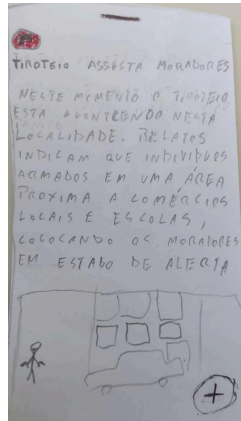 TIROTEIO ASSUSTA MORADORES
NESTE MOMENTO O TIROTEIO
ESTÁ ACONTRENDO NESTA
LOCALIDADE. RELATOS
INDICAM QUE INDIVIDUOS
ARMADOS EM UMA ÁREA
PROXIMA A COMÉRCIOS
LOCAIS E ESCOLAS,
COLOCANDO OS MORADORES
EM ESTADO DE ALERTA
+